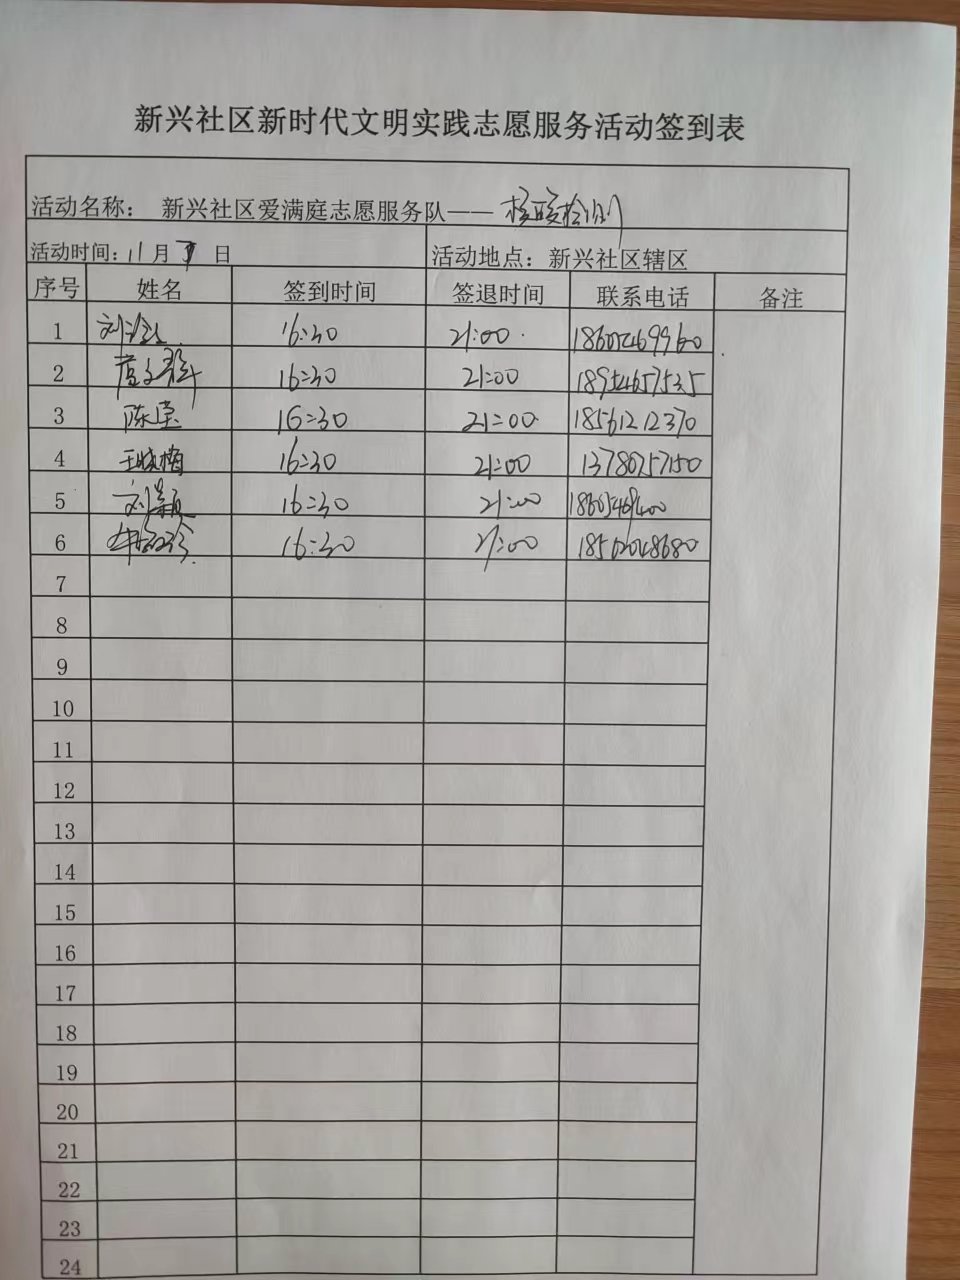 新兴社区新时代文明实践志愿服务活动签到表
活动名称： 新兴社区爱满庭志愿服务队——核酸检测
活动时间：11月 日 活动地点：新兴社区辖区
序号 姓名 签到时间 签退时间 联系电话 备注
1 16:30 21:00
2 16:30 21:00 18954657535
3 陈莹 16:30 21:00 18561212370
4 王晓梅 16:30 21:00
5 刘颖 16:30 21:00
6 16:30 21:00
7
8
9
10
11
12
13
14
15
16
17
18
19
20
21
22
23
24